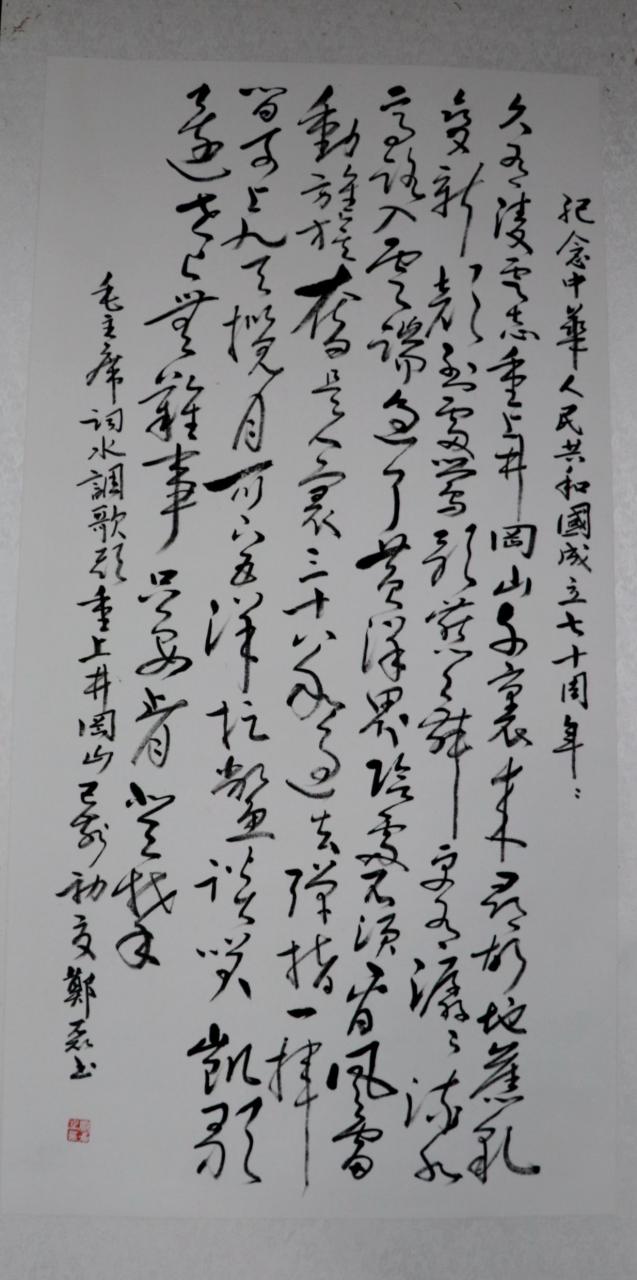 紀念中華人民共和國成立七十周年：
久有淩雲志重上井岡山千裏来尋故地舊貌
變新顏到處鶯歌燕舞更有潺々流水
高路入雲端過了黃洋界險處不須看風雷
動旌旗奮是人寰三十八年過去彈指一揮
間可上九天攬月可下五洋捉鱉談笑凱歌
還世上無難事只要肯登攀
毛主席詞水調歌頭重上井岡山己亥初夏鄭書